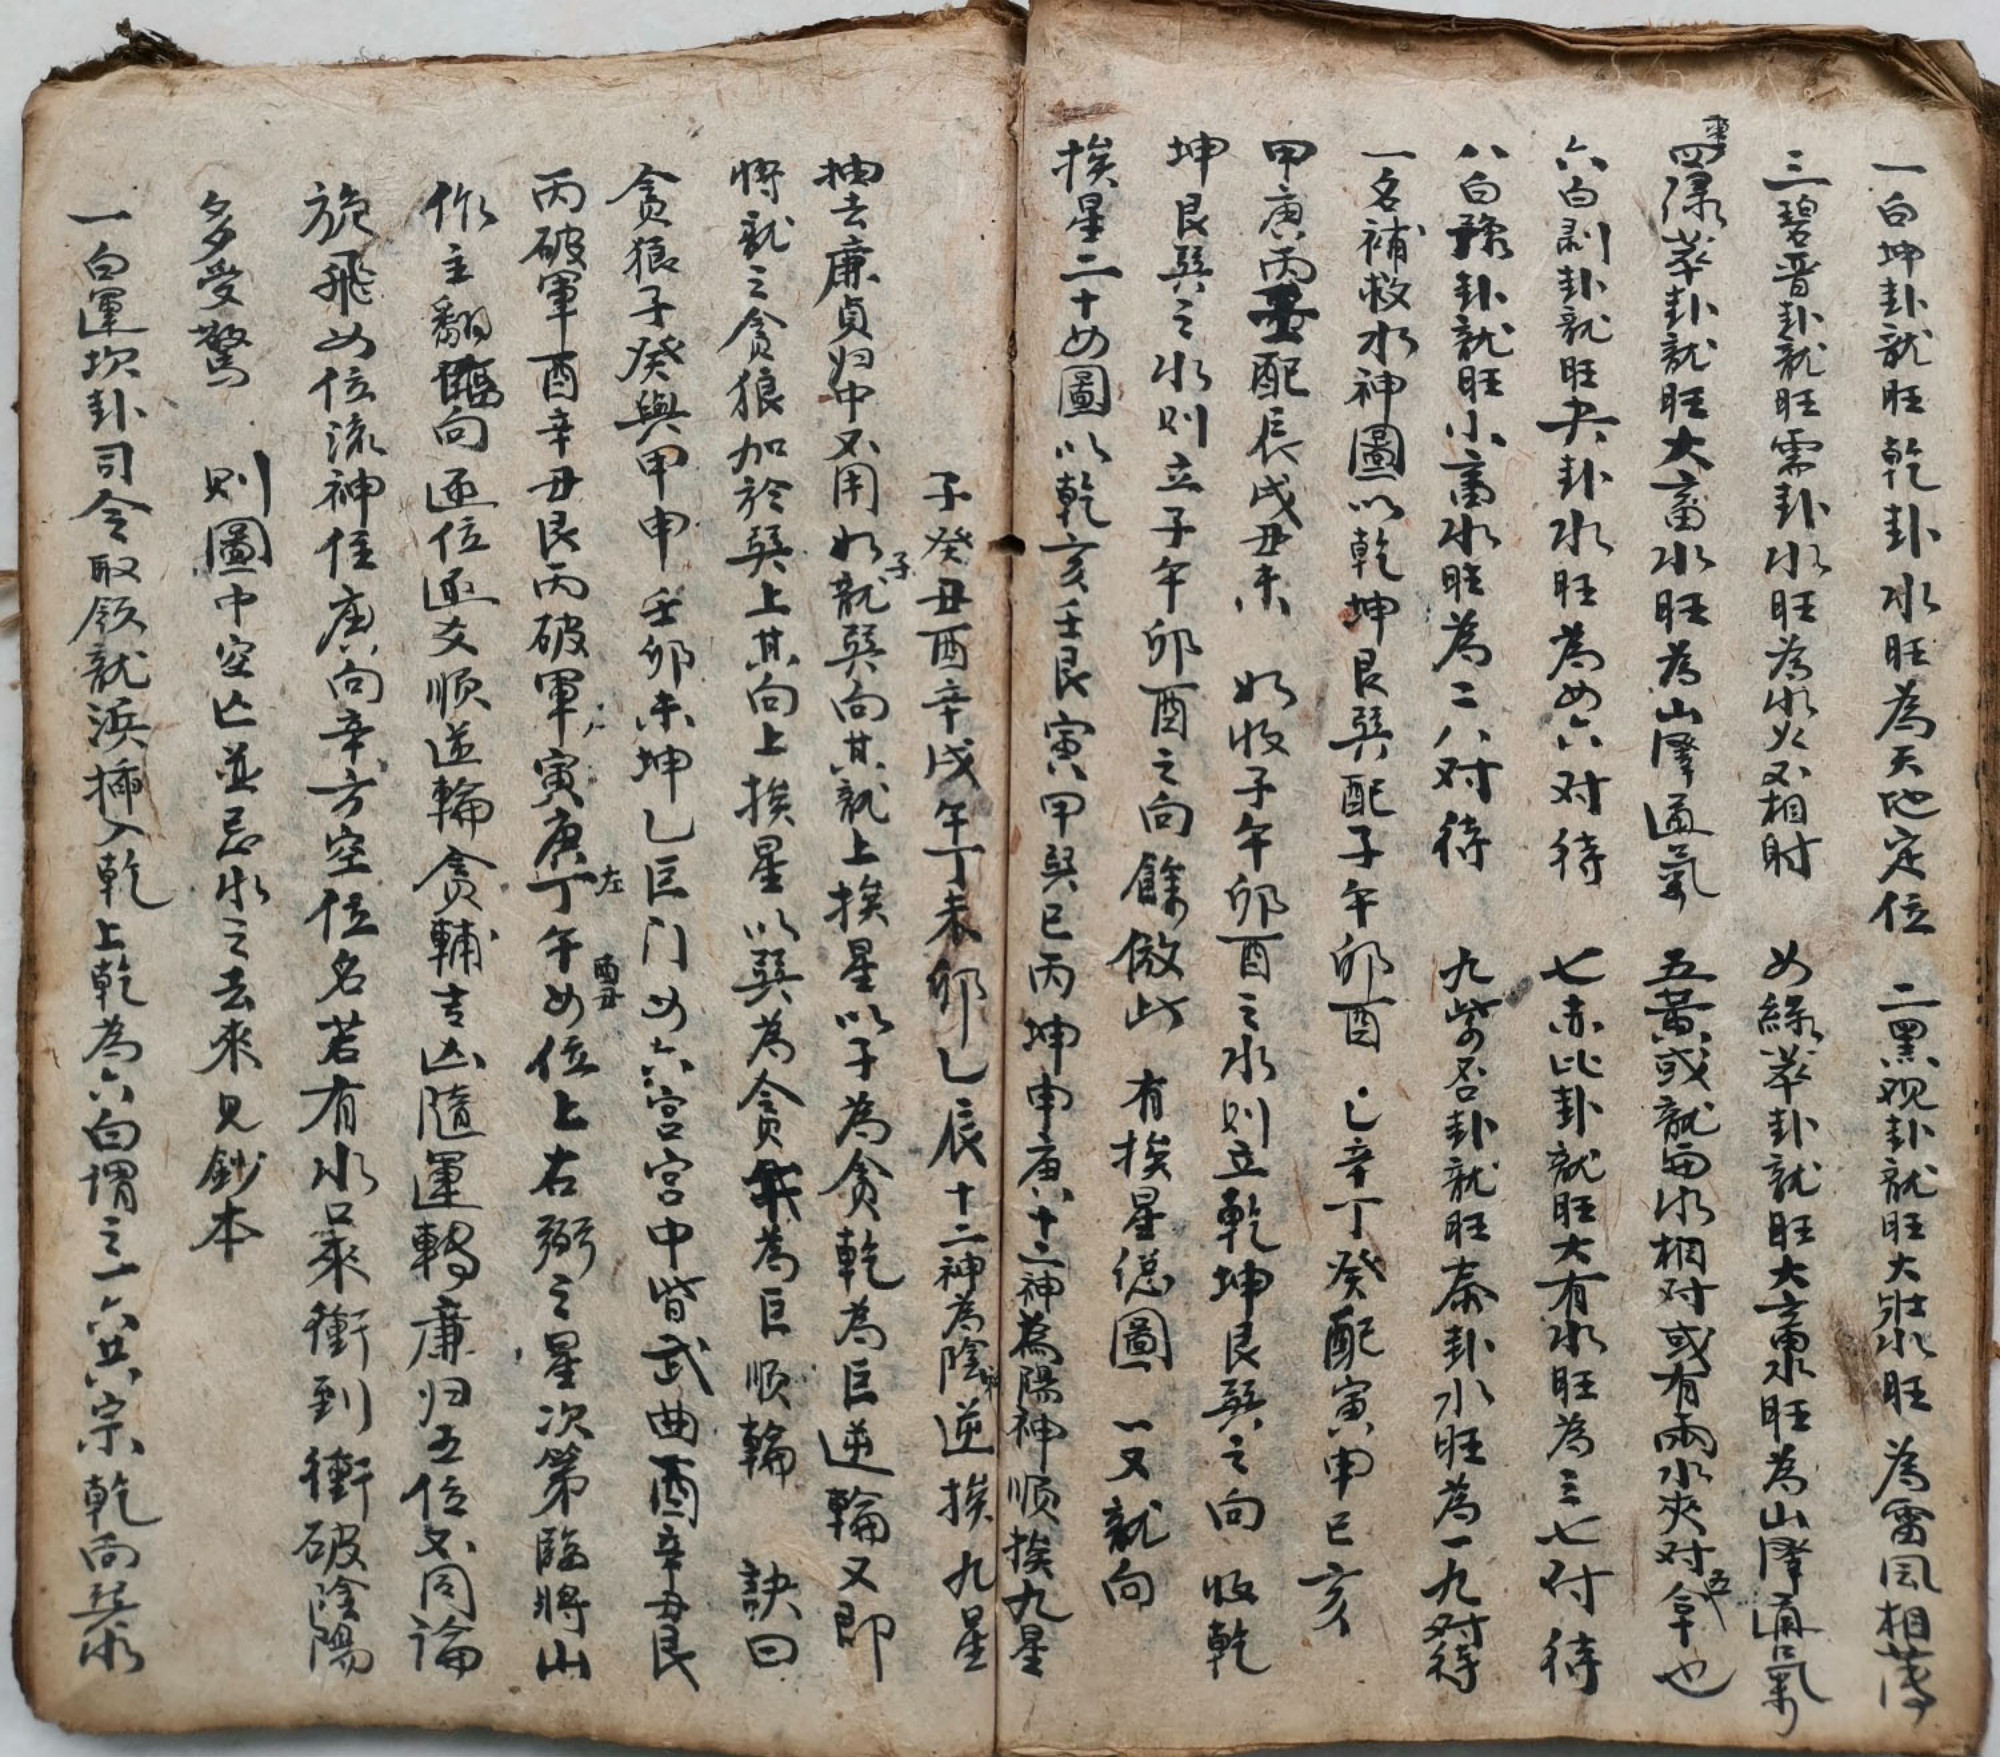 一白坤卦龍旺乾卦水旺為天地定位 二黑观卦龍旺大壯水旺為雷風相薄
三碧晋卦龍旺需卦水旺為水火不相射 四綠萃卦龍旺大畜水旺為山澤通氣
四渌萃卦龍旺大畜水旺為山澤通氣 五黃或龍与水相对或有兩水夾对是也
六白剥卦龍旺夬卦水旺為四六对待 七赤比卦龍旺大有水旺為三七付待
八白豫卦龍旺小畜水旺為二八对待 九紫否卦龍旺泰卦水旺為一九对待
一名補救水神圖以乾坤艮巽配子午卯酉 乙辛丁癸配寅申巳亥
甲庚丙壬配辰戌丑未 如收子午卯酉之水则立乾坤艮巽之向收乾
坤艮巽之水则立子午卯酉之向餘倣此 有挨星總圖一又龍向
挨星二十四圖以乾亥壬艮寅甲巽巳丙坤申庚十二神為陽神順挨九星
子癸丑酉辛戌午丁未卯乙辰十二神為陰神逆挨九星
抽去廉貞归中不用如子龍巽向其龍上挨星以子為貪乾為巨逆輪又即
將龍之貪狼加於巽上其向上挨星以巽為貪 為巨順輪 訣曰
貪狼子癸與甲申壬卯未坤乙巨门四六宮宮中皆武曲酉辛丑艮
丙破軍酉辛丑艮丙破軍寅庚丁午四位上右弼之星次第臨將山
作主翻臨向逐位逐爻順逆輪貪輔吉凶隨運轉廉归五位不同論
旋飛四位流神住庚向辛方空位名若有水來衝到衝破陰陽
多受驚 则圖中空亡並忌水之去來見鈔本
一白運坎卦司令取领龍浜插入乾上乾為六白谓之一六共宗乾向巽水